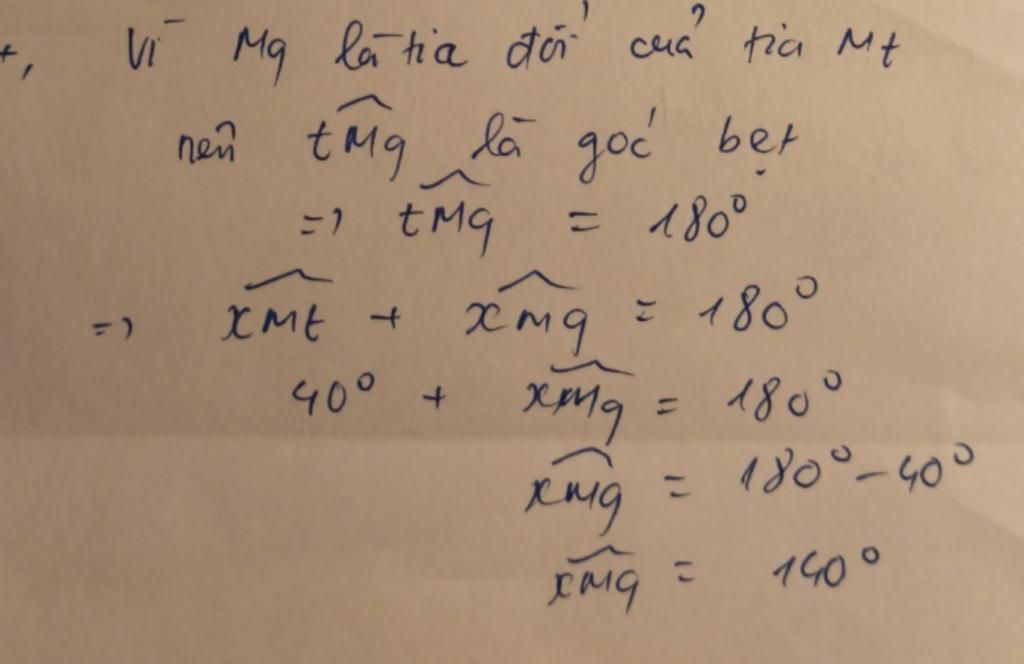 +, Vì Mq là tia đối của tia Mt
nên tMq là góc bẹt
=> tMq = 180°
=> xMt + xMq = 180°
40° + xMq = 180°
xMq = 180° - 40°
xMq = 140°